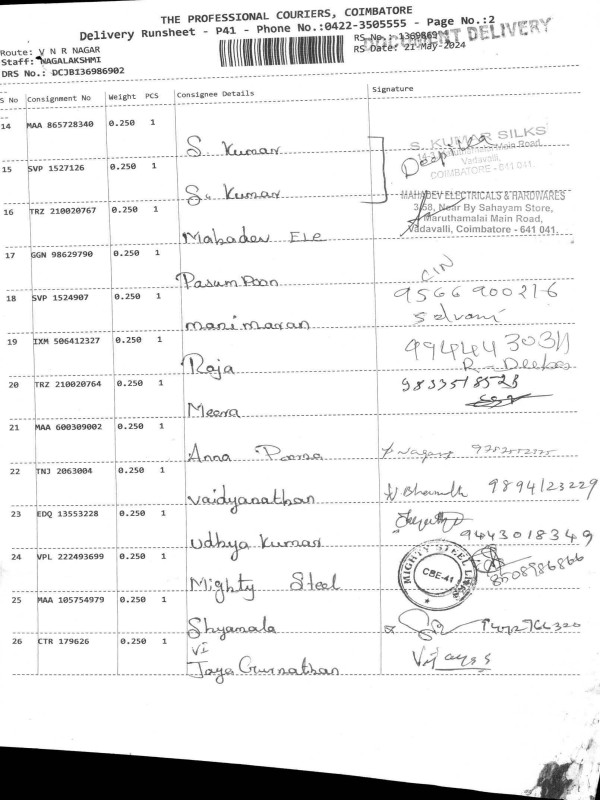 THE PROFESSIONAL COURIERS, COIMBATORE
Delivery Runsheet - P41 - Phone No.:0422-3505555 - Page No.:2
DOCUMENT DELIVERY
Route: V N R NAGAR
RS No.: 13698690
Staff: NAGALAKSHMI
RS Date: 21-May-2024
DRS No.: DCJB136986902
S No Consignment No Weight PCS Consignee Details Signature
14 MAA 865728340 0.250 1 S. Kumar
S. KUMAR SILKS
Main Road,
Vadavalli,
COIMBATORE - 641 041.
Deepika
15 SVP 1527126 0.250 1 S. Kumar
16 TRZ 210020767 0.250 1 Mahadev Ele
MAHADEV ELECTRICALS & HARDWARES
3/58, Near By Sahayam Store,
Maruthamalai Main Road,
Vadavalli, Coimbatore - 641 041.
17 GGN 98629790 0.250 1 Pasum Poon CIN
18 SVP 1524907 0.250 1 manimaran 9566900216
Selvani
19 IXM 506412327 0.250 1 Raja 9944443031
R
20 TRZ 210020764 0.250 1 Meera 9833518528
21 MAA 600309002 0.250 1 Anna Poorna
22 TNJ 2063004 0.250 1 Vaidyanathan 9894123229
23 EDQ 13553228 0.250 1 Udhya Kumar 9443018349
24 VPL 222493699 0.250 1 Mighty Steel
MIGHTY STEEL LINES
CBE-41
8508986866
25 MAA 105754979 0.250 1 Shyamala
26 CTR 179626 0.250 1 VI
Jaya Gurunathan